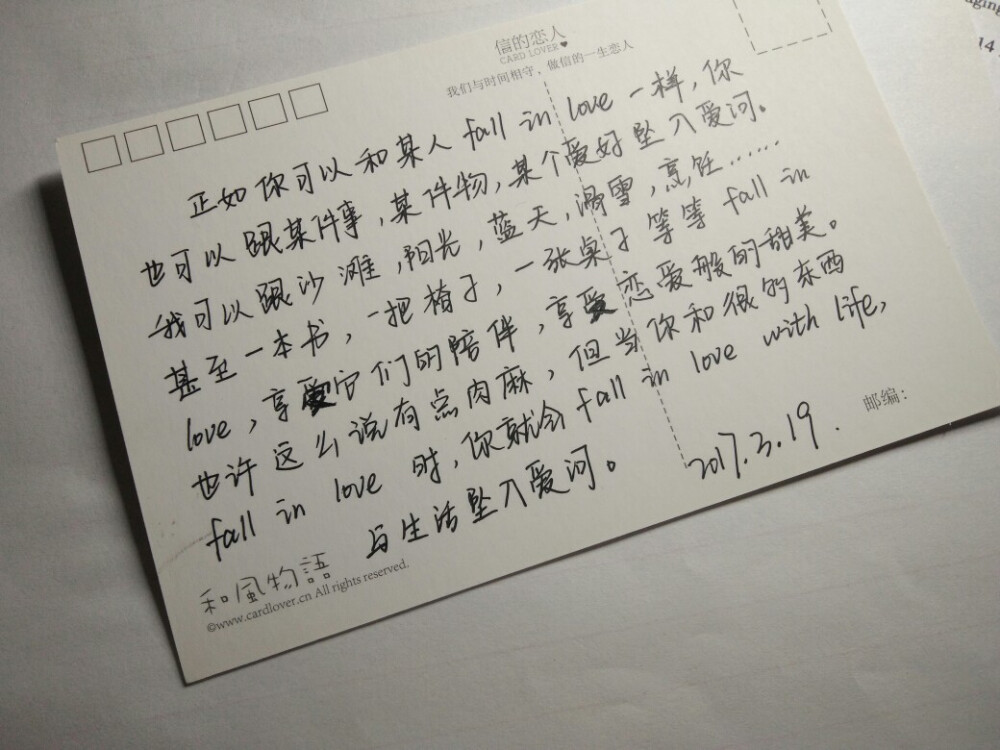 信的恋人
CARD LOVER
我们与时间相守，做信的一生恋人
正如你可以和某人 fall in love 一样，你
也可以跟某件事，某件物，某个爱好坠入爱河。
我可以跟沙滩，阳光，蓝天，滑雪，烹饪……
甚至一本书，一把椅子，一张桌子等等 fall in
love，享受它们的陪伴，享受恋爱般的甜美。
也许这么说有点肉麻，但当你和很多东西
fall in love 时，你就会 fall in love with life，
与生活坠入爱河。
2017.3.19.
邮编：
和風物語
©www.cardlover.cn All rights reserved.
aging
14